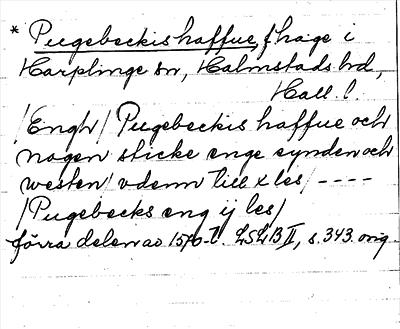 * Pugebeckis haffue, f hage i
Harplinge sn, Halmstads hd,
Hall. l.
/Engh/ Pugebeckis haffue och
nogen sticke enge synden och
westen vdenn till x les/ ----
/Pugebecks eng ij les/
förra delen av 1570-t. LSLB II, s. 343. orig.